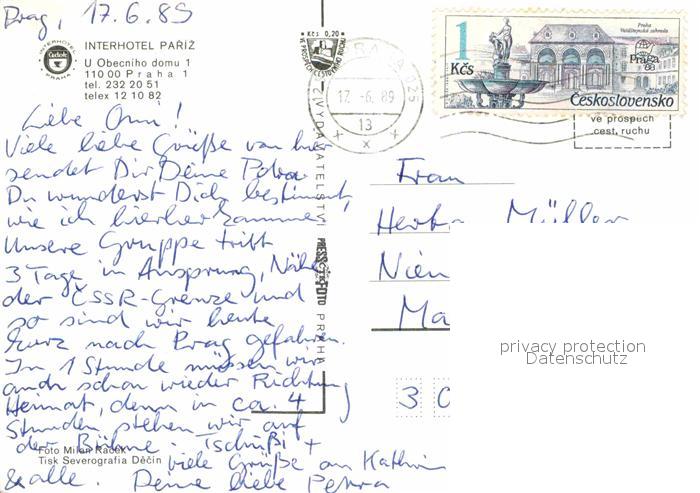 Prag, 17.6.89
INTERHOTEL PAŘÍŽ
U Obecního domu 1
110 00 Praha 1
tel. 232 20 51
telex 12 10 82
INTERHOTEL
PRAHA
Liebe Omi!
Viele liebe Grüße von hier
sendet Dir Deine Petra
Du wunderst Dich bestimmt,
wie ich hierher komme,
Unsere Gruppe trifft
3 Tage in Ansprung, Nähe
der ČSSR-Grenze und
so sind wir heute
kurz nach Prag gefahren.
In 1 Stunde müssen wir
auch schon wieder Richtung
Heimat, denn in ca. 4
Stunden stehen wir auf
der Bühne. Tschüßi +
viele Grüße an Kathrin
& alle. Deine liebe Petra
Foto Milan Raček
Tisk Severografia Děčín
Kčs 0,20
VE PROSPĚCH CEST. RUCHU
2 VYDAVATELSTVÍ PRESSFOTO PRAHA
PRAHA 025
17. -6. 89
13
x
1
Kčs
Praha
Valdštejnská zahrada
Praha
88
Československo
ve prospěch
cest. ruchu
Frau
Herta Müller
Nien
Ma
3 0
privacy protection
Datenschutz